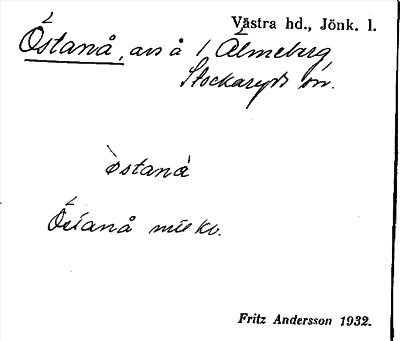 Västra hd., Jönk. l.
Östanå, avs å 1 Älmeberg,
Stockaryds sn.
òstaná
Östanå mtl kv.
Fritz Andersson 1932.